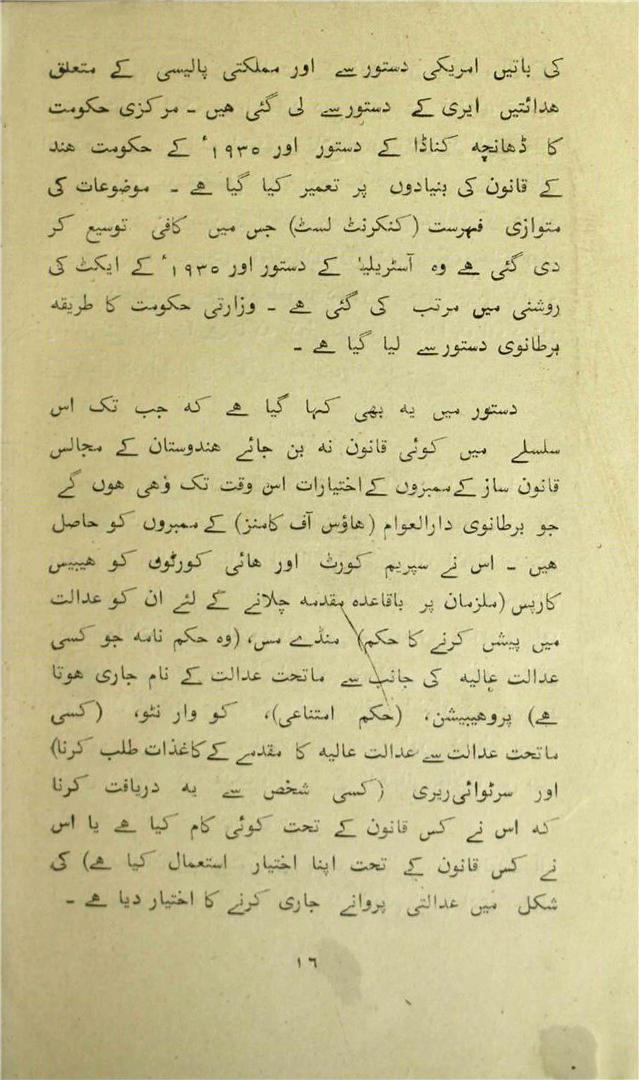 کی باتیں امریکی دستور سے اور مملکتی پالیسی کے متعلق
ھدائتیں ایری کے دستور سے لی گئی ھیں ۔ مرکزی حکومت
کا ڈھانچه کناڈا کے دستور اور ۱۹۳۵ء کے حکومت ھند
کے قانون کی بنیادوں پر تعمیر کیا گیا ھے ۔ موضوعات کی
متوازی فہرست (کنکرنٹ لسٹ) جس میں کافی توسیع کر
دی گئی ھے وہ آسٹریلیا کے دستور اور ۱۹۳۵ء کے ایکٹ کی
روشنی میں مرتب کی گئی ھے ۔ وزارتی حکومت کا طریقه
برطانوی دستور سے لیا گیا ھے ۔
دستور میں یه بھی کہا گیا ھے که جب تک اس
سلسلے میں کوئی قانون نه بن جائے ھندوستان کے مجالس
قانون ساز کے ممبروں کے اختیارات اس وقت تک وھی ھوں گے
جو برطانوی دارالعوام (ھاؤس آف کامنز) کے ممبروں کو حاصل
ھیں ۔ اس نے سپریم کورٹ اور ھائی کورٹوں کو ھیبیس
کارپس (ملزمان پر باقاعدہ مقدمه چلانے کے لئے ان کو عدالت
میں پیش کرنے کا حکم) منڈے مس، (وہ حکم نامه جو کسی
عدالت عالیه کی جانب سے ماتحت عدالت کے نام جاری ھوتا
ھے) پروھیبیشن، (حکم امتناعی)، کو وار نٹو، (کسی
ماتحت عدالت سے عدالت عالیه کا مقدمے کے کاغذات طلب کرنا)
اور سرٹوائی ریری (کسی شخص سے یه دریافت کرنا
که اس نے کس قانون کے تحت کوئی کام کیا ھے یا اس
نے کس قانون کے تحت اپنا اختیار استعمال کیا ھے) کی
شکل میں عدالتی پروانے جاری کرنے کا اختیار دیا ھے ۔
۱۶